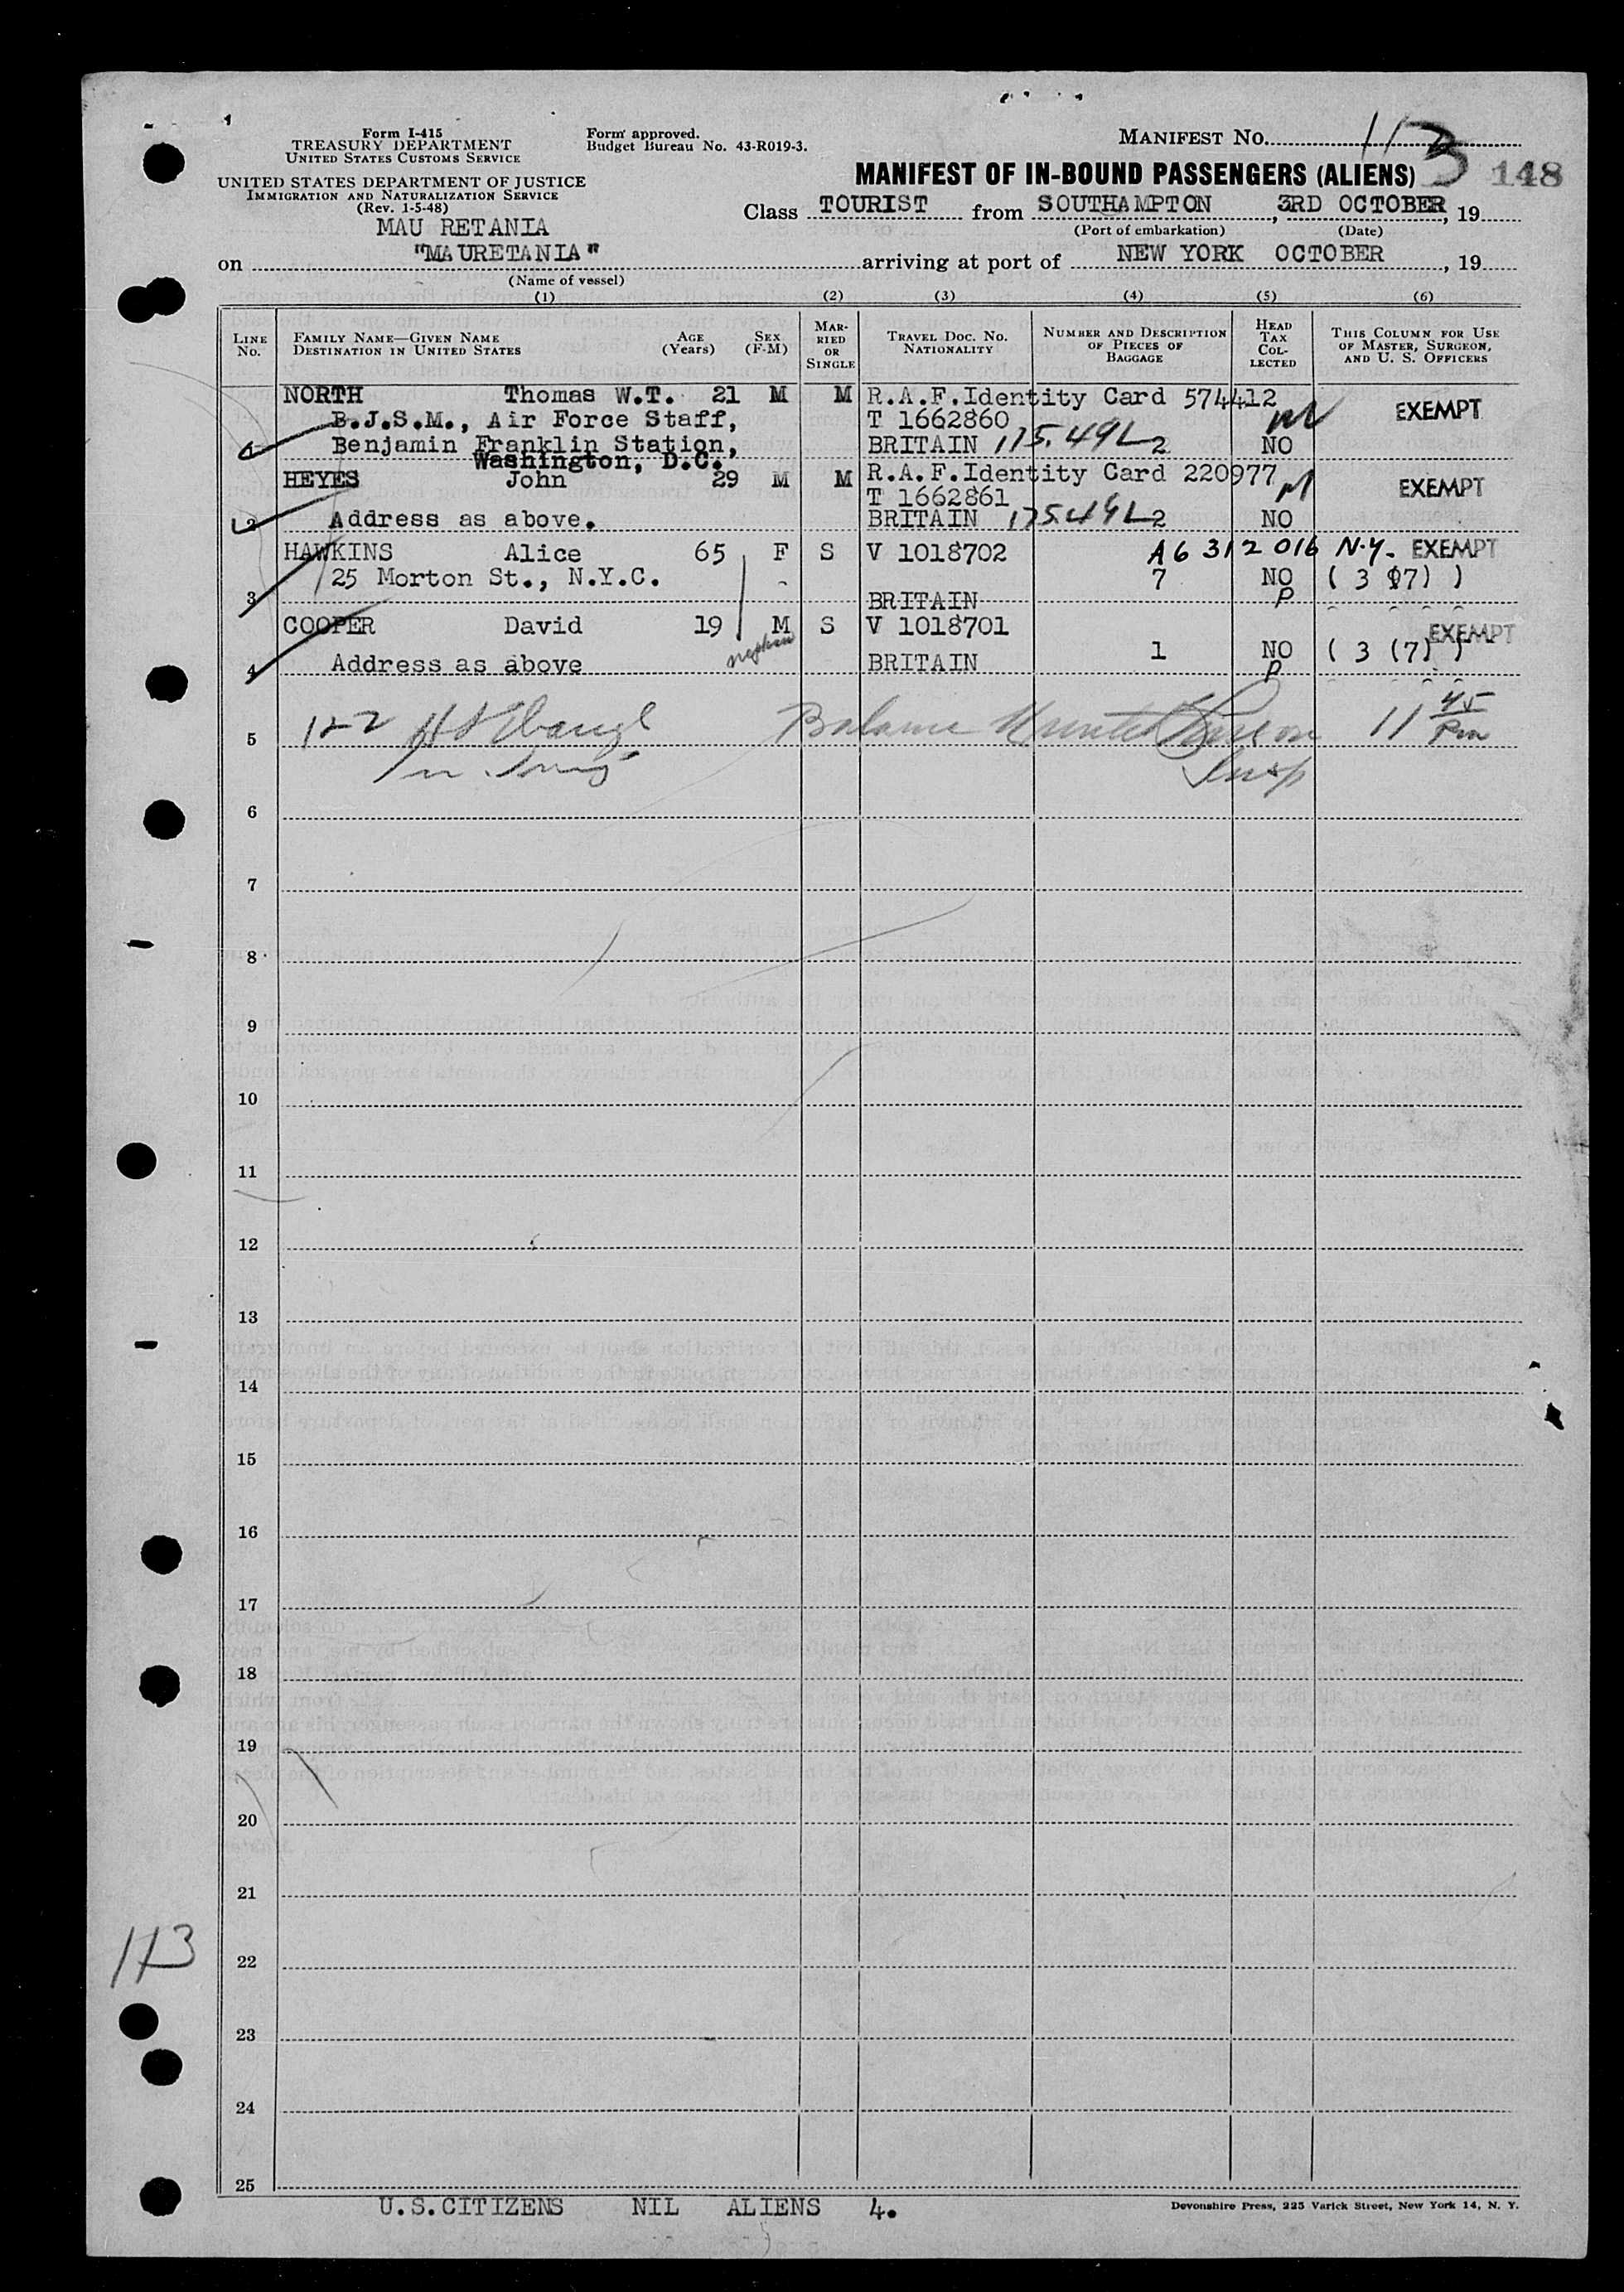 Form I-415
TREASURY DEPARTMENT
UNITED STATES CUSTOMS SERVICE
Form approved.
Budget Bureau No. 43-R019-3.
MANIFEST No. 113
UNITED STATES DEPARTMENT OF JUSTICE
IMMIGRATION AND NATURALIZATION SERVICE
(Rev. 1-5-48)
MANIFEST OF IN-BOUND PASSENGERS (ALIENS) 148
Class TOURIST from SOUTHAMPTON, 3RD OCTOBER, 19
(Port of embarkation) (Date)
MAU RETANIA
on "MAURETANIA" arriving at port of NEW YORK OCTOBER, 19
(Name of vessel)
(1) (2) (3) (4) (5) (6)
LINE No. FAMILY NAME—GIVEN NAME DESTINATION IN UNITED STATES AGE (Years) SEX (F-M) MARRIED OR SINGLE TRAVEL DOC. NO. NATIONALITY NUMBER AND DESCRIPTION OF PIECES OF BAGGAGE HEAD TAX COLLECTED THIS COLUMN FOR USE OF MASTER, SURGEON, AND U. S. OFFICERS
NORTH Thomas W.T. 21 M M R.A.F.Identity Card 574412 EXEMPT
B.J.S.M., Air Force Staff, T 1662860
1 Benjamin Franklin Station, BRITAIN 175.49L 2 NO
Washington, D.C.
HEYES John 29 M M R.A.F.Identity Card 220977 M EXEMPT
T 1662861
2 Address as above. BRITAIN 175.49L 2 NO
HAWKINS Alice 65 F S V 1018702 A6 312 016 N.Y. EXEMPT
25 Morton St., N.Y.C. 7 NO ( 3 (7) )
3 BRITAIN P
COOPER David 19 M S V 1018701 EXEMPT
nephew 1 NO ( 3 (7) )
4 Address as above BRITAIN P
5 1-2 Balance 11 45 Pm
Insp
6
7
8
9
10
11
12
13
14
15
16
17
18
19
20
21
113
22
23
24
25
U.S.CITIZENS NIL ALIENS 4.
Devonshire Press, 225 Varick Street, New York 14, N. Y.